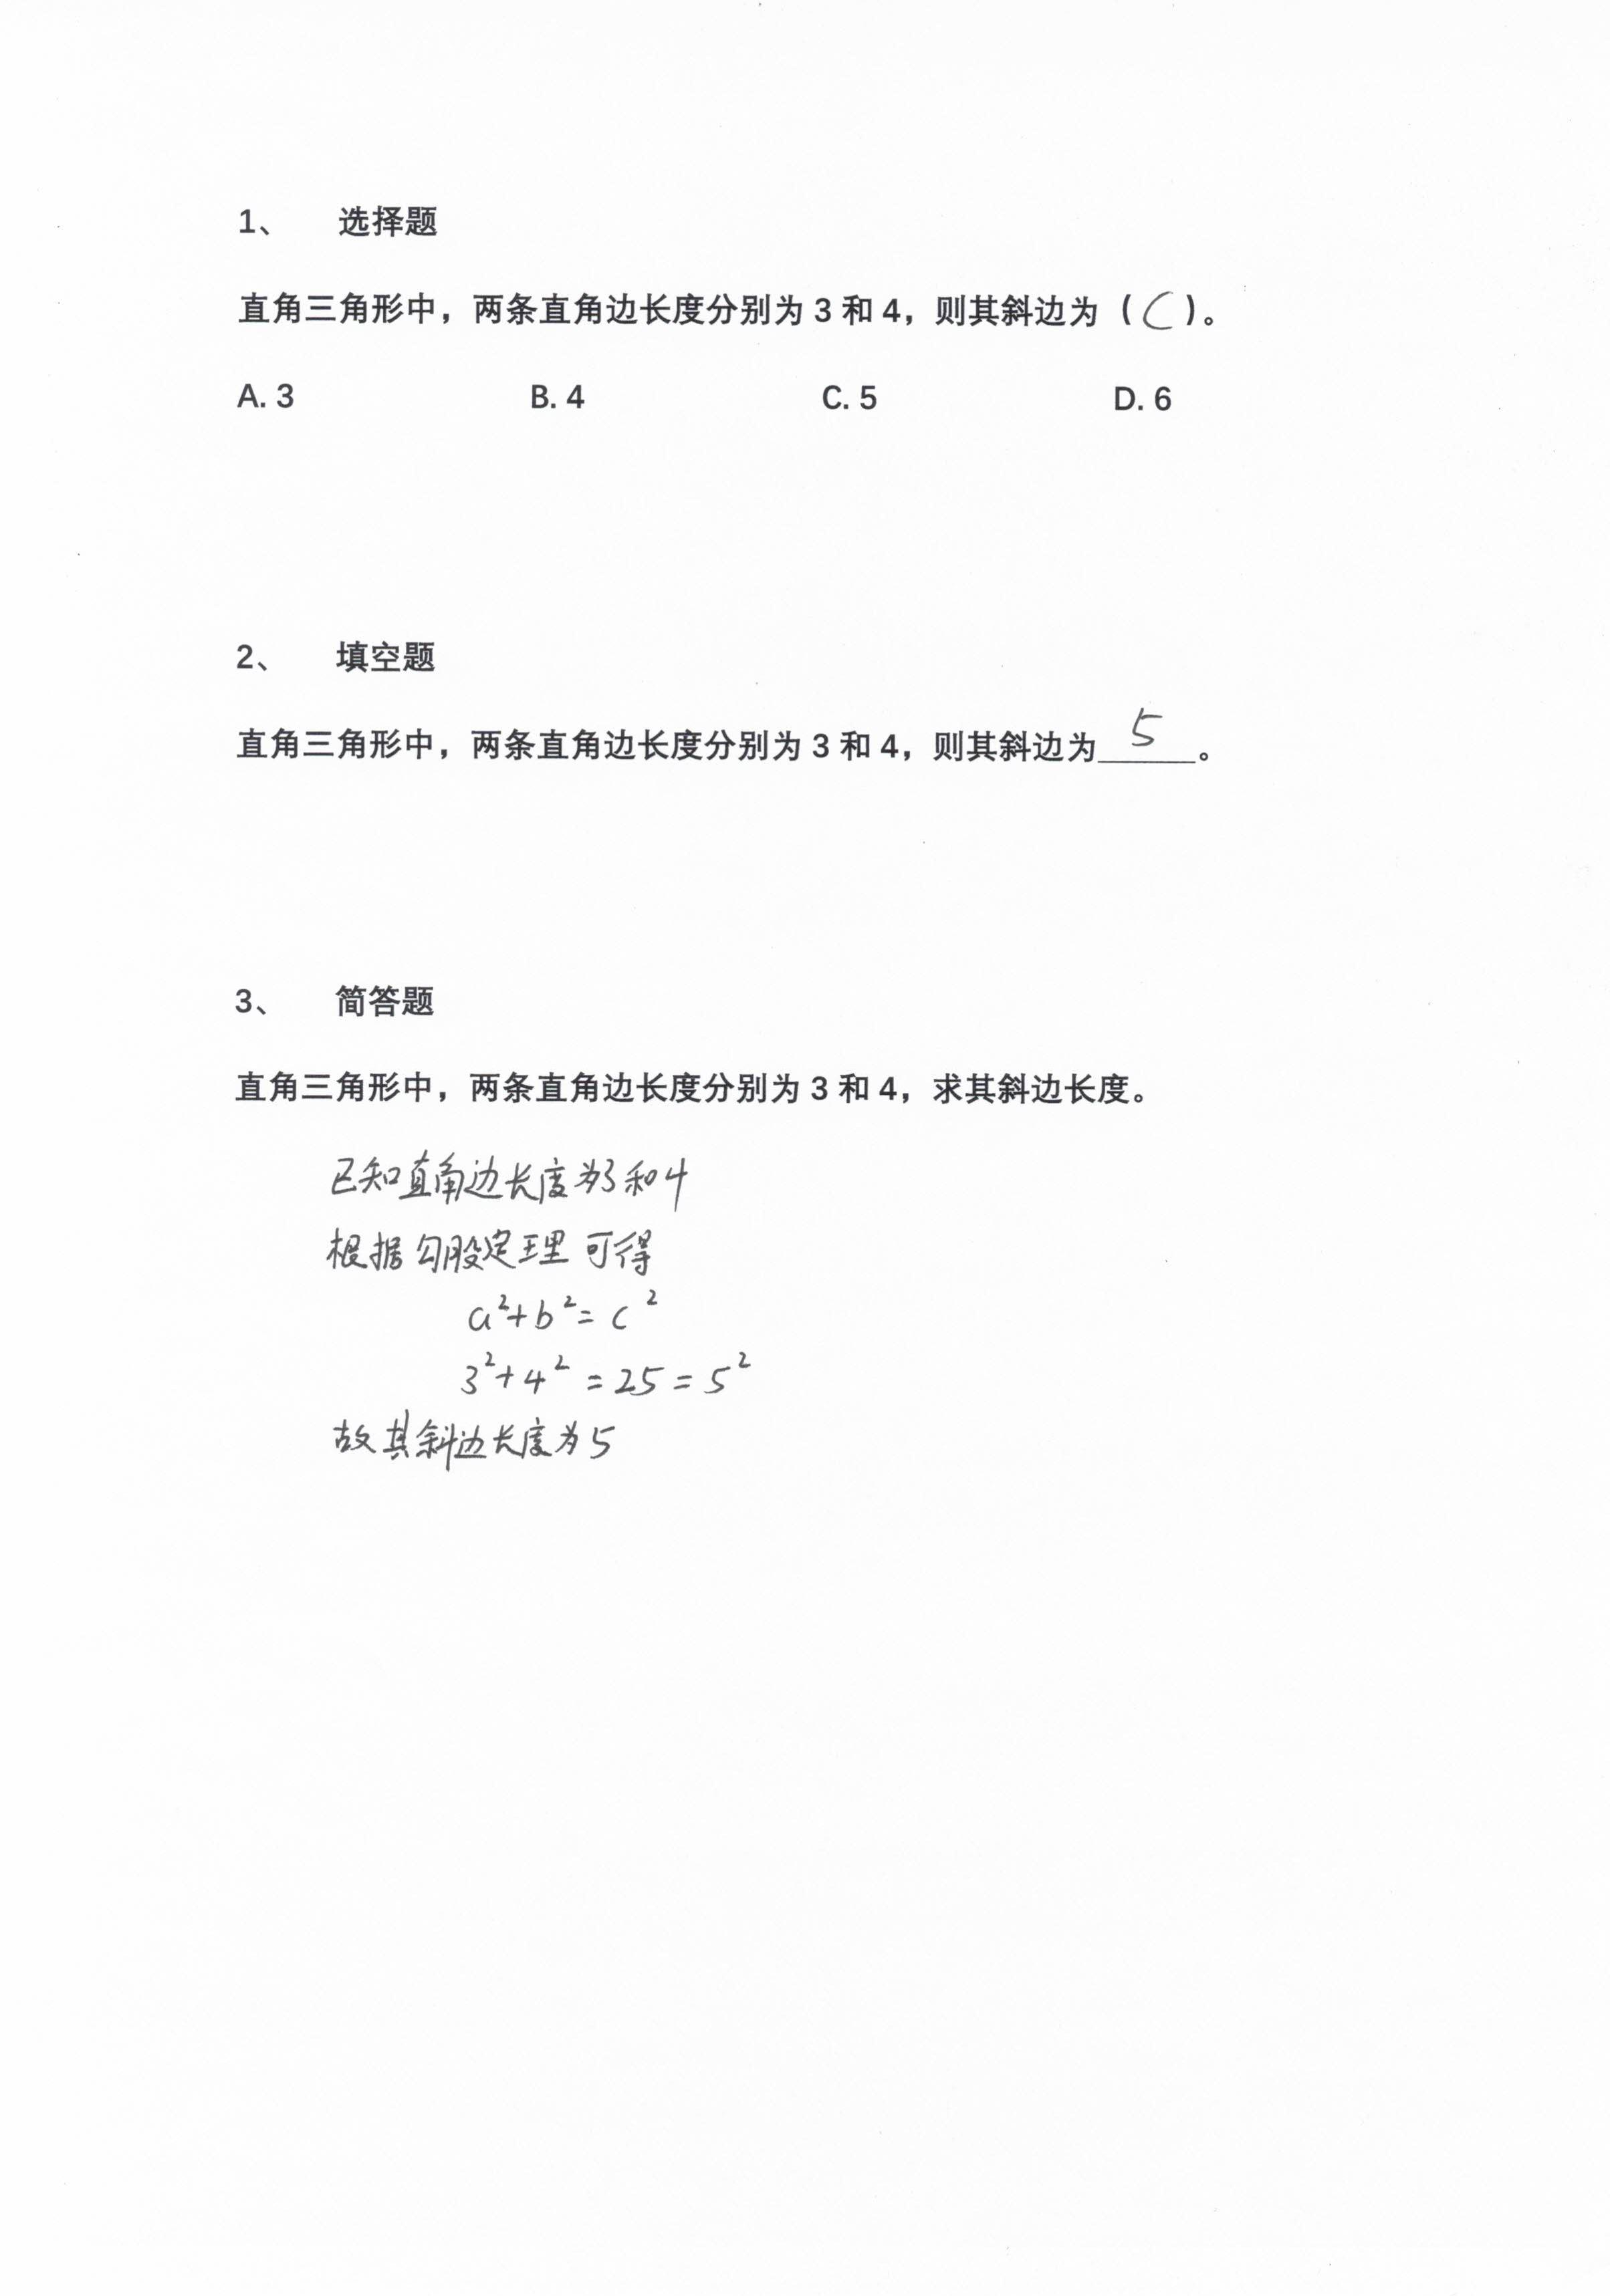 1、 选择题
直角三角形中，两条直角边长度分别为 3 和 4，则其斜边为（C）。
A. 3 B. 4 C. 5 D. 6
2、 填空题
直角三角形中，两条直角边长度分别为 3 和 4，则其斜边为 5 。
3、 简答题
直角三角形中，两条直角边长度分别为 3 和 4，求其斜边长度。
已知直角边长度为3和4
根据勾股定理 可得
a²+b²=c²
3²+4²=25=5²
故其斜边长度为5